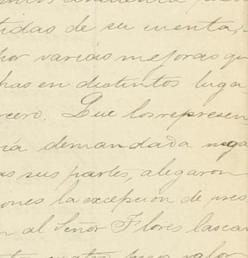 tidas de su cuenta,
por varias mejoras qu
has en distintos luga
cero. Que los represen
ría demandada nega
as sus partes, alegaron
ones la excepcion de pres
n al Señor Flores lascan